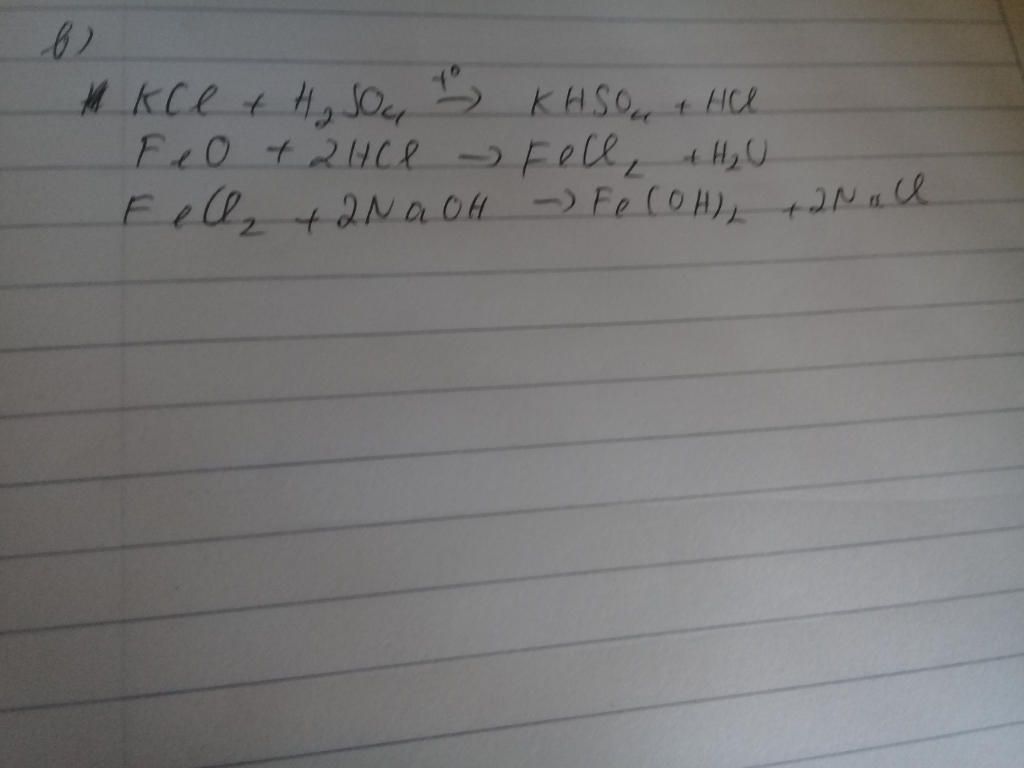 в)
KCl + H₂SO₄ t° → KHSO₄ + HCl
FeO + 2HCl → FeCl₂ + H₂O
FeCl₂ + 2NaOH → Fe(OH)₂ + 2NaCl